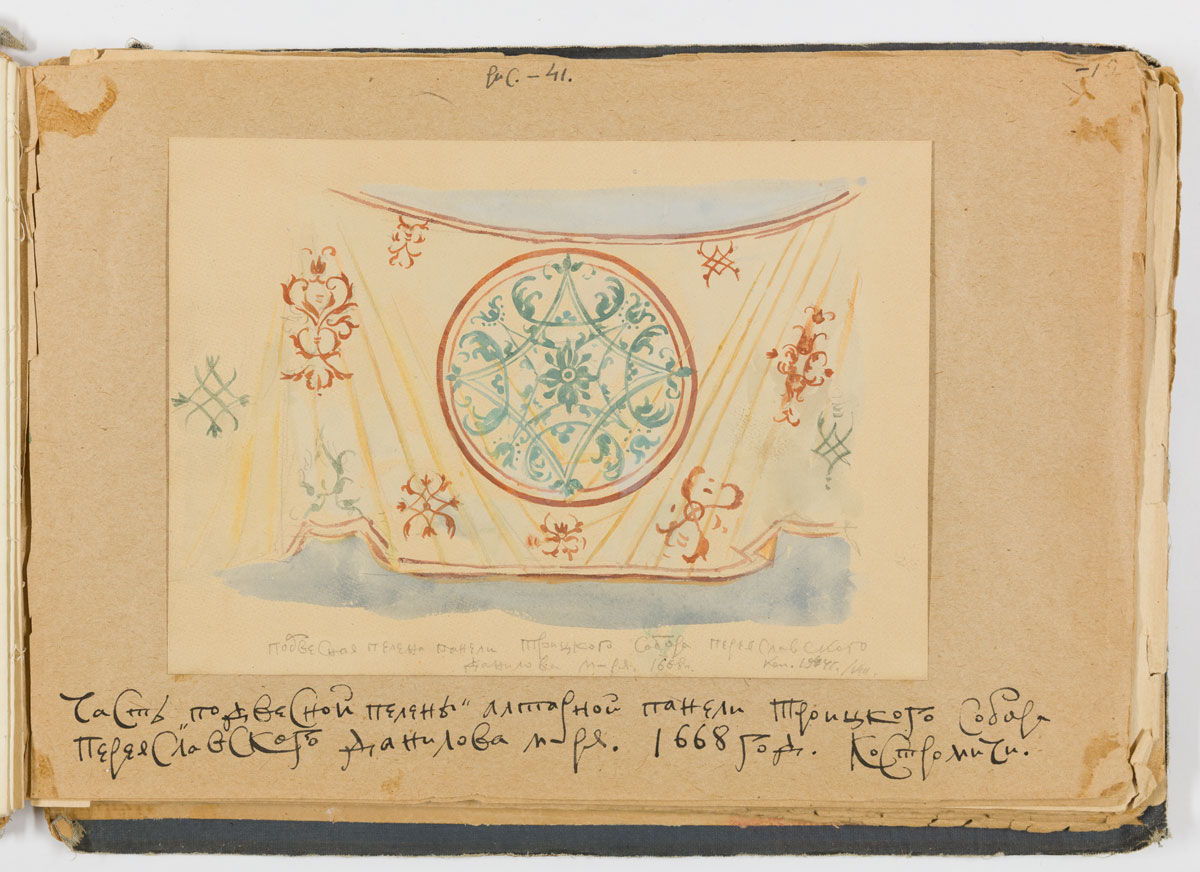 рис. – 41.
подвесная пелена панели Троицкого Собора переяславского
данилова м-ря. 1668г.
Часть "подвесной пелены" алтарной панели Троицкого Собора
переяславского Данилова м-ря. 1668 год. Костромичи.